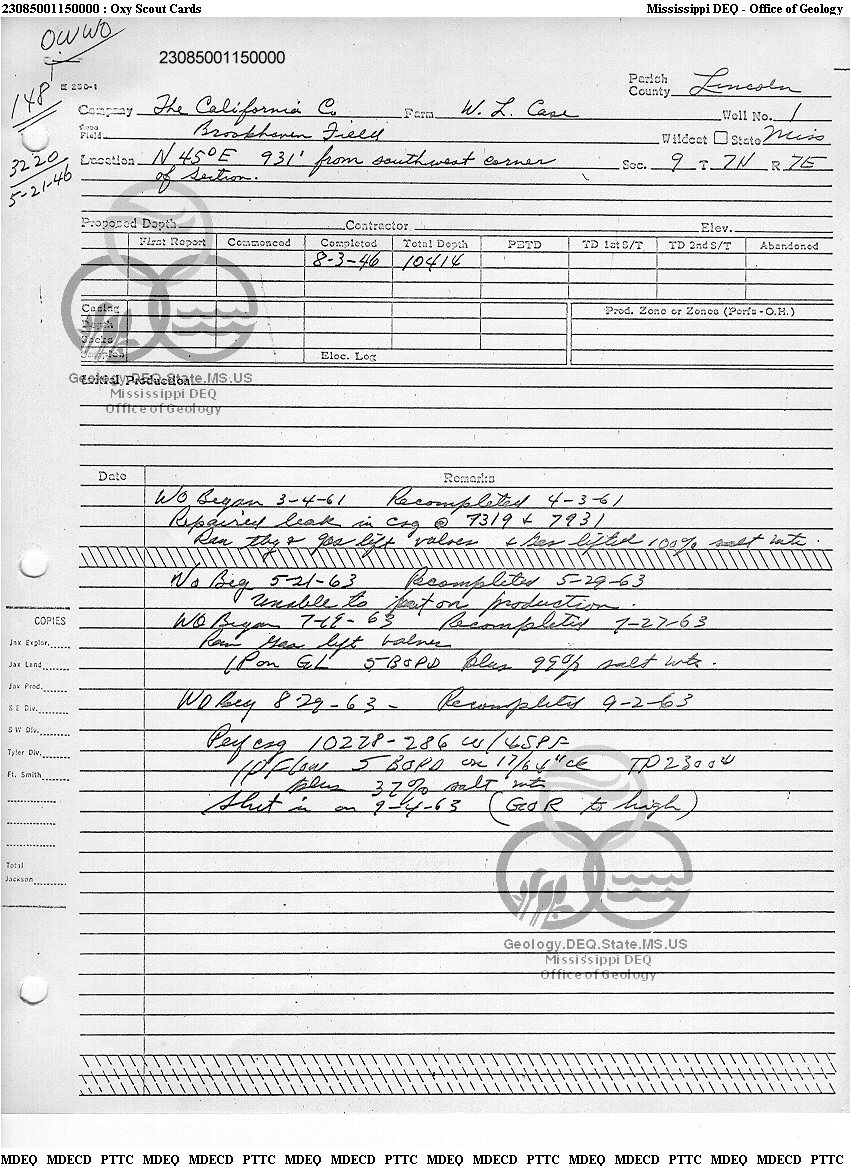 23085001150000 : Oxy Scout Cards Mississippi DEQ - Office of Geology
OWWO
23085001150000
148
E 250-1
Parish
County Lincoln
Company The California Co Farm W. L. Case Well No. 1
Area
Field Brookhaven Field Wildcat State Miss
3220
5-21-46
Location N 45° E 931' from southwest corner Sec. 9 T 7N R 7E
of section.
Proposed Depth Contractor Elev.
First Report Commenced Completed Total Depth PBTD TD 1st S/T TD 2nd S/T Abandoned
8-3-46 10414
Casing Prod. Zone or Zones (Perfs - O.H.)
Depth
Sacks
Elec. Log
Initial Production
Geology.DEQ.State.MS.US
Mississippi DEQ
Office of Geology
Date Remarks
WO Began 3-4-61 Recompleted 4-3-61
Repaired leak in csg @ 7319 & 7931
Ran tbg & gas lift valves & gas lifted 100% salt wtr.
WO Beg 5-21-63 Recompleted 5-29-63
Unable to put on production.
WO Began 7-19-63 Recompleted 7-27-63
Ran gas lift valves
IP on GL 5 BOPD plus 99% salt wtr.
WO Beg 8-29-63 - Recompleted 9-2-63
Perf csg 10278-286 w/4SPF
IP Flow 5 BOPD on 17/64" ck TP 2300#
plus 37% salt wtr
Shut in on 9-4-63 (GOR to high)
COPIES
Jax Explor.
Jax Land
Jax Prod.
S E Div.
S W Div.
Tyler Div.
Ft. Smith
Total
Jackson
Geology.DEQ.State.MS.US
Mississippi DEQ
Office of Geology
MDEQ MDECD PTTC MDEQ MDECD PTTC MDEQ MDECD PTTC MDEQ MDECD PTTC MDEQ MDECD PTTC MDEQ MDECD PTTC